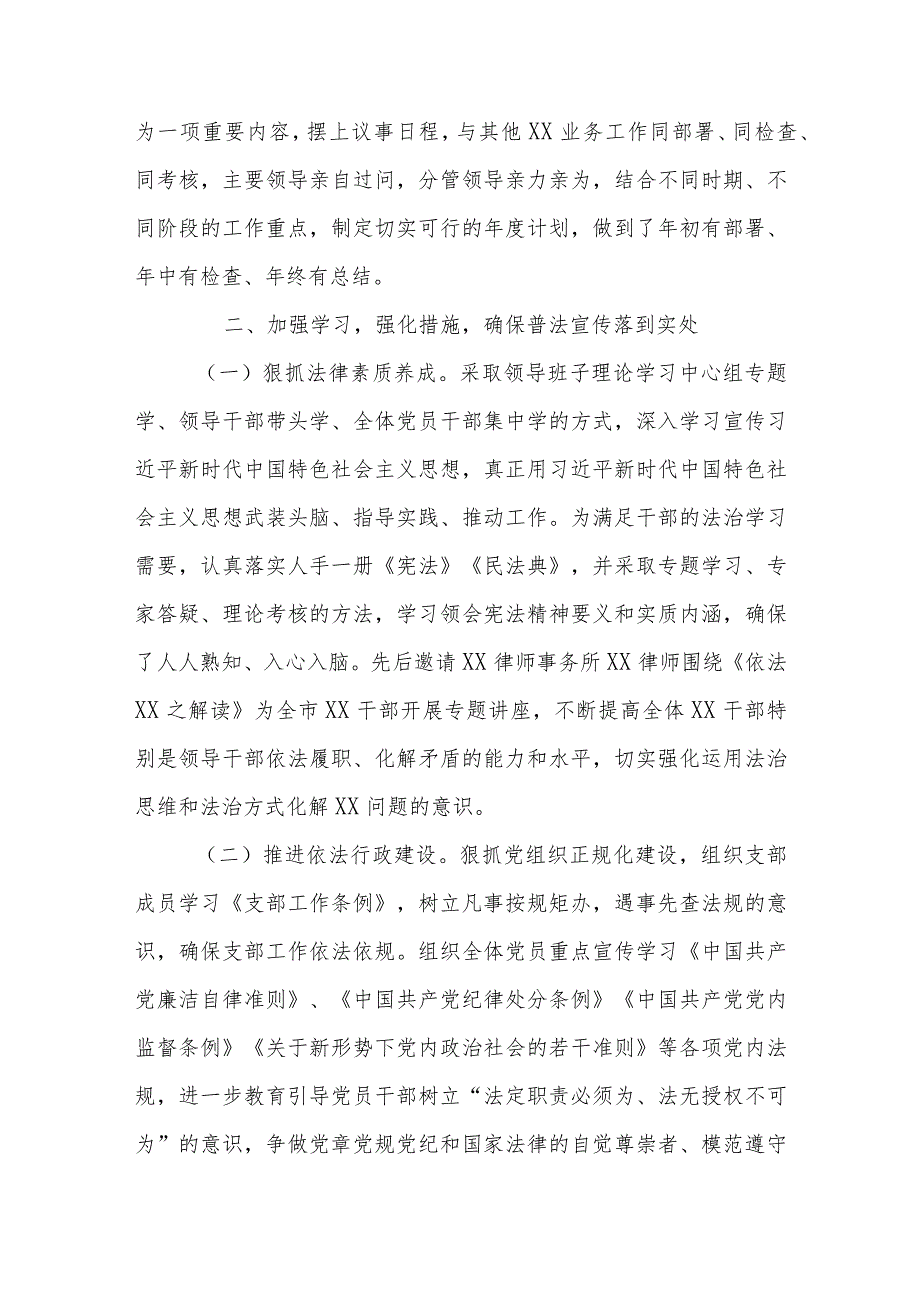 为一项重要内容，摆上议事日程，与其他XX业务工作同部署、同检查、
同考核，主要领导亲自过问，分管领导亲力亲为，结合不同时期、不
同阶段的工作重点，制定切实可行的年度计划，做到了年初有部署、
年中有检查、年终有总结。
二、加强学习，强化措施，确保普法宣传落到实处
（一）狠抓法律素质养成。采取领导班子理论学习中心组专题
学、领导干部带头学、全体党员干部集中学的方式，深入学习宣传习
近平新时代中国特色社会主义思想，真正用习近平新时代中国特色社
会主义思想武装头脑、指导实践、推动工作。为满足干部的法治学习
需要，认真落实人手一册《宪法》《民法典》，并采取专题学习、专
家答疑、理论考核的方法，学习领会宪法精神要义和实质内涵，确保
了人人熟知、入心入脑。先后邀请XX律师事务所XX律师围绕《依法
XX之解读》为全市XX干部开展专题讲座，不断提高全体XX干部特
别是领导干部依法履职、化解矛盾的能力和水平，切实强化运用法治
思维和法治方式化解XX问题的意识。
（二）推进依法行政建设。狠抓党组织正规化建设，组织支部
成员学习《支部工作条例》，树立凡事按规矩办，遇事先查法规的意
识，确保支部工作依法依规。组织全体党员重点宣传学习《中国共产
党廉洁自律准则》、《中国共产党纪律处分条例》《中国共产党党内
监督条例》《关于新形势下党内政治社会的若干准则》等各项党内法
规，进一步教育引导党员干部树立“法定职责必须为、法无授权不可
为”的意识，争做党章党规党纪和国家法律的自觉尊崇者、模范遵守